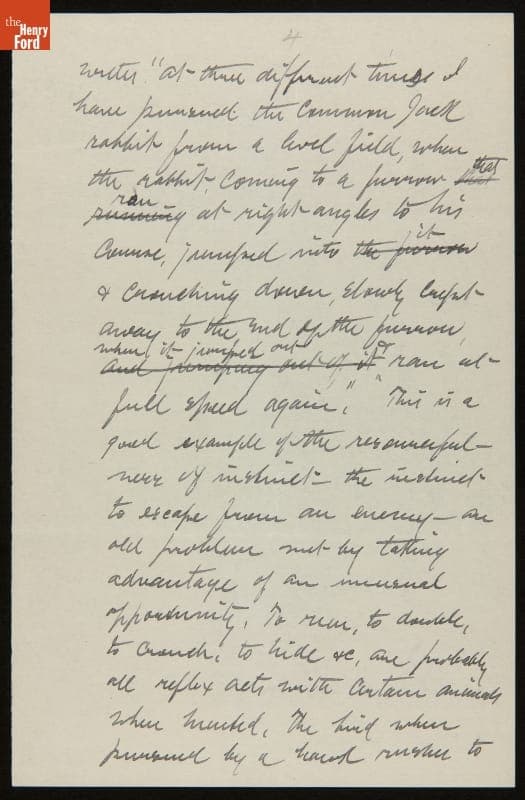 the
Henry
Ford
4
writes. "At three different times I
have pursued the common Jack
rabbit from a level field, when
the rabbit, coming to a furrow that
that
ran
running at right angles to his
course, jumped into it
the furrow
& crouching down, slowly crept
away to the end of the furrow,
when it jumped out &
and jumping out of it ran at
full speed again." This is a
good example of the resourceful-
ness of instinct – the instinct
to escape from an enemy – an
old problem met by taking
advantage of an unusual
opportunity. To run, to double,
to crouch, to hide &c, are probably
all reflex acts with certain animals
when hunted. The bird when
pursued by a hawk rushes to